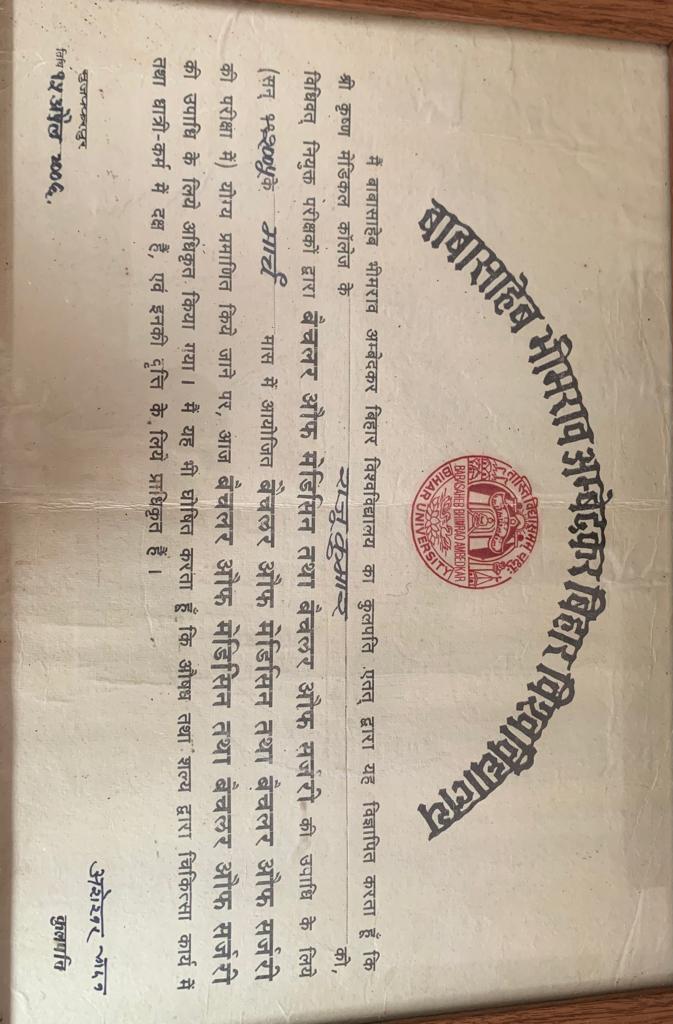 बाबासाहेब भीमराव अम्बेदकर बिहार विश्वविद्यालय
नास्ति विद्यासमम् चक्षुः
BABASAHEB BHIMRAO AMBEDKAR
BIHAR UNIVERSITY
मैं बाबासाहेब भीमराव अम्बेदकर बिहार विश्वविद्यालय का कुलपति एतत् द्वारा यह विज्ञापित करता हूँ कि
श्री कृष्ण मेडिकल कॉलेज के राजू कुमार को,
विधिवत् नियुक्त परीक्षकों द्वारा बैचलर औफ मेडिसिन तथा बैचलर औफ सर्जरी की उपाधि के लिये
(सन् २००५ के मार्च मास में आयोजित बैचलर औफ मेडिसिन तथा बैचलर औफ सर्जरी
की परीक्षा में) योग्य प्रमाणित किये जाने पर, आज बैचलर औफ मेडिसिन तथा बैचलर औफ सर्जरी
की उपाधि के लिये अधिकृत किया गया। मैं यह भी घोषित करता हूँ कि औषध तथा शल्य द्वारा चिकित्सा कार्य में
तथा धात्री-कर्म में दक्ष हैं, एवं इनकी वृत्ति के लिये प्राधिकृत हैं ।
मुजफ्फरपुर
तिथि १५ अप्रैल २००६.
कुलपति